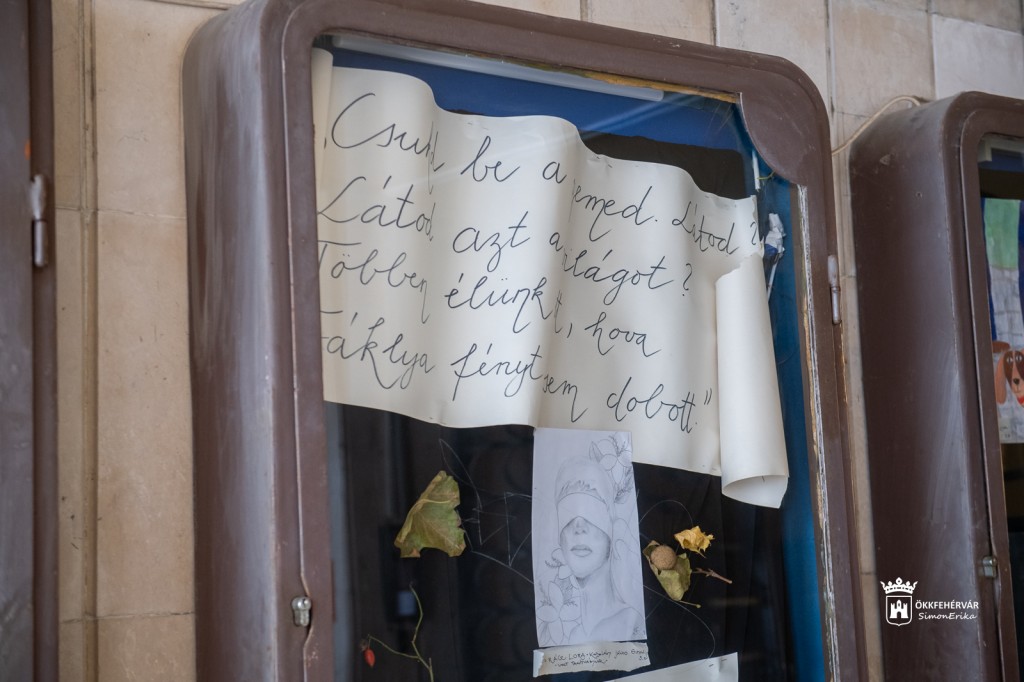 „Csukd be a szemed. Látod?
Látod azt a világot?
Többen élünk itt, hova
Fáklya fényt sem dobott."
RÁCZ LÓRA
ÖKKFEHÉRVÁR
SimonErika